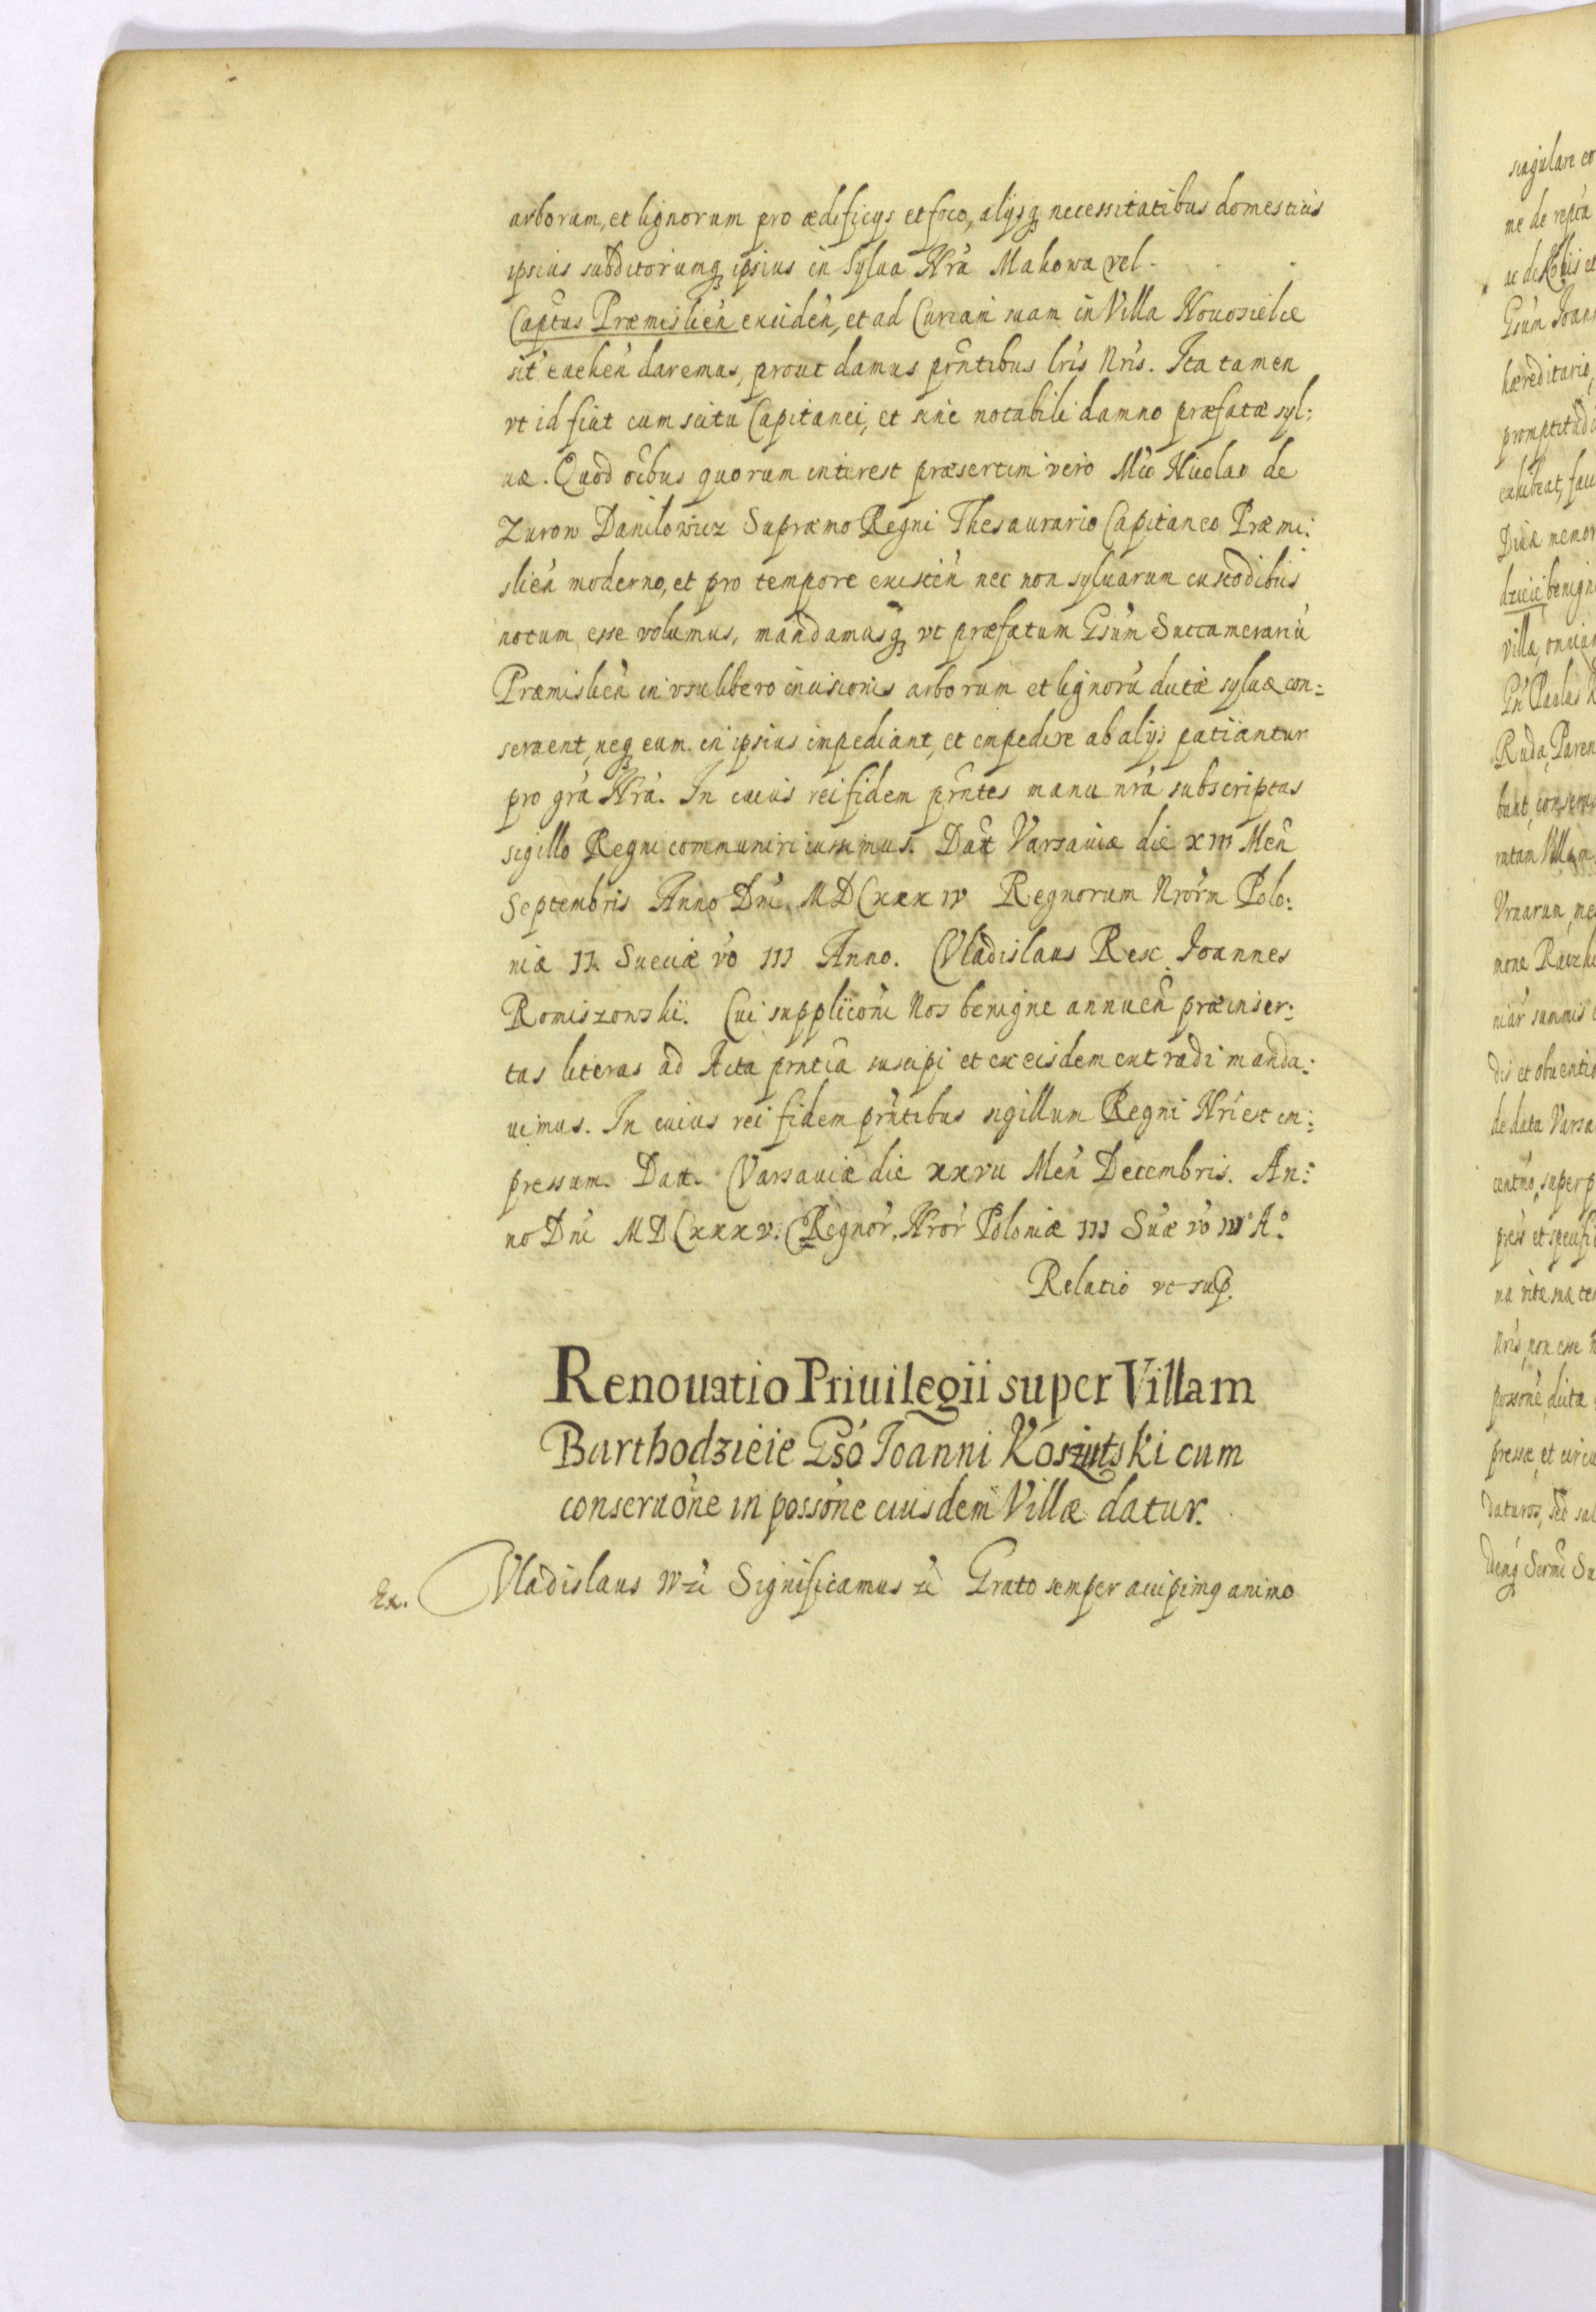 arborum, et lignorum pro ædificijs et foco, alijsq necessitatibus domesticis
ipsius subditorumq ipsius in sylua Nrã Makowa vel - . .
Captus Præmislień exciden, et ad Curiam suam in Villa Nouosielce
sit euehen daremus, prout damus pñtibus lris Nris. Ita tamen
vt id fiat cum scitu Capitanei, et sine notabili damno præfatæ syl:
uæ. Quod oibus quorum interest præsertim vero Mco Nicolao de
Zurow Danilowicz Supræmo Regni Thesaurario Capitaneo Præmi:
slień moderno, et pro tempore existeń nec non syluarum custodibus
notum esse volumus, mandamusq vt præfatum Gsum Succamerariũ
Præmislień in vsu libero incisionis arborum et lignorũ dictæ syluæ con:
seruent, neq eum in ipsius impediant, et impedire ab alijs patiantur
pro grã Nrã. In cuius rei fidem pñtes manu nrã subscriptas
sigillo Regni communiri iussimus. Datt Varsauiæ die XIII Meñ
Septembris Anno Dni MDCXXXIV Regnorum Nrorm Polo:
niæ II. Sueciæ vo III Anno. Vladislaus Rex Joannes
Romiszowski. Cui supplicõni Nos benigne annueñ præinser:
tas literas ad Acta pñtia suscipi et ex eisdem extradi manda:
uimus. In cuius rei fidem pñtibus sigillum Regni Nri est im:
pressum. Datt. Varsauiæ die XXVII Meñ Decembris. An:
no Dni MDCXXXV. Regnor. Nror Poloniæ III Suæ vo IV° A°
Relatio vt sup.
Renouatio Priuilegii super Villam
Barthodzieie Gso Joanni Koszutski cum
conseruõne in possõne eiusdem Villæ datur.
Ex. Vladislaus IV zc Significamus zc Grato semper accipimq animo
singulare
me de
Gsum Joan
hæreditario,
exhibeat, fau
dzieie benign
villa,
Ruda, Paren
de data Varsa